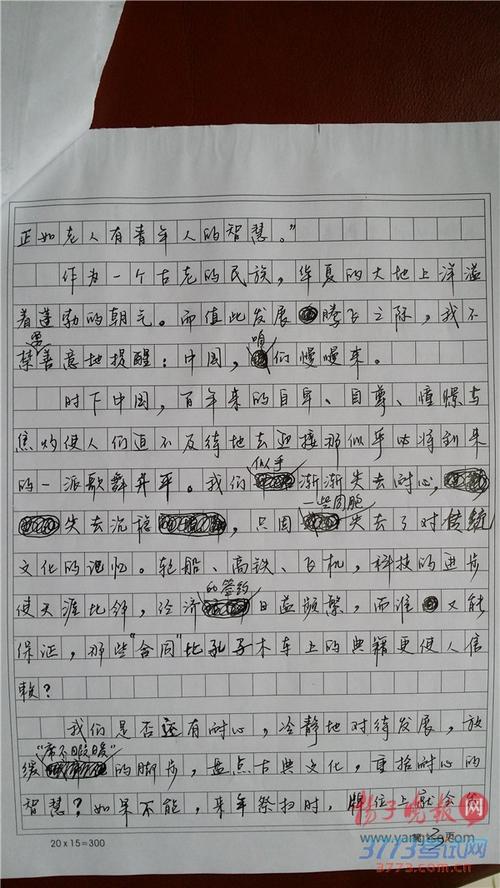 正如老人有青年人的智慧。”
作为一个古老的民族，华夏的大地上洋溢
着蓬勃的朝气。而值此发展腾飞之际，我不
禁善意地提醒：中国，咱们慢慢来。
时下中国，百年来的自卑、自尊、憧憬与
焦灼使人们迫不及待地去迎接那似乎必将到来
的一派歌舞升平。我们似乎渐渐失去耐心，
失去沉稳，只因一些同胞失去了对传统
文化的记忆。轮船、高铁、飞机，科技的进步
使天涯比邻，经济的签约日益频繁，而谁又能
保证，那些“合同”比孔子木车上的典籍更使人信
赖？
我们是否还有耐心，冷静地对待发展，放
缓“席不暇暖”的脚步，盘点古典文化，重拾耐心的
智慧？如果不能，来年祭扫时，牌位上就会
扬子晚报网
www.yang
3773考试网
3773.com
20×15=300